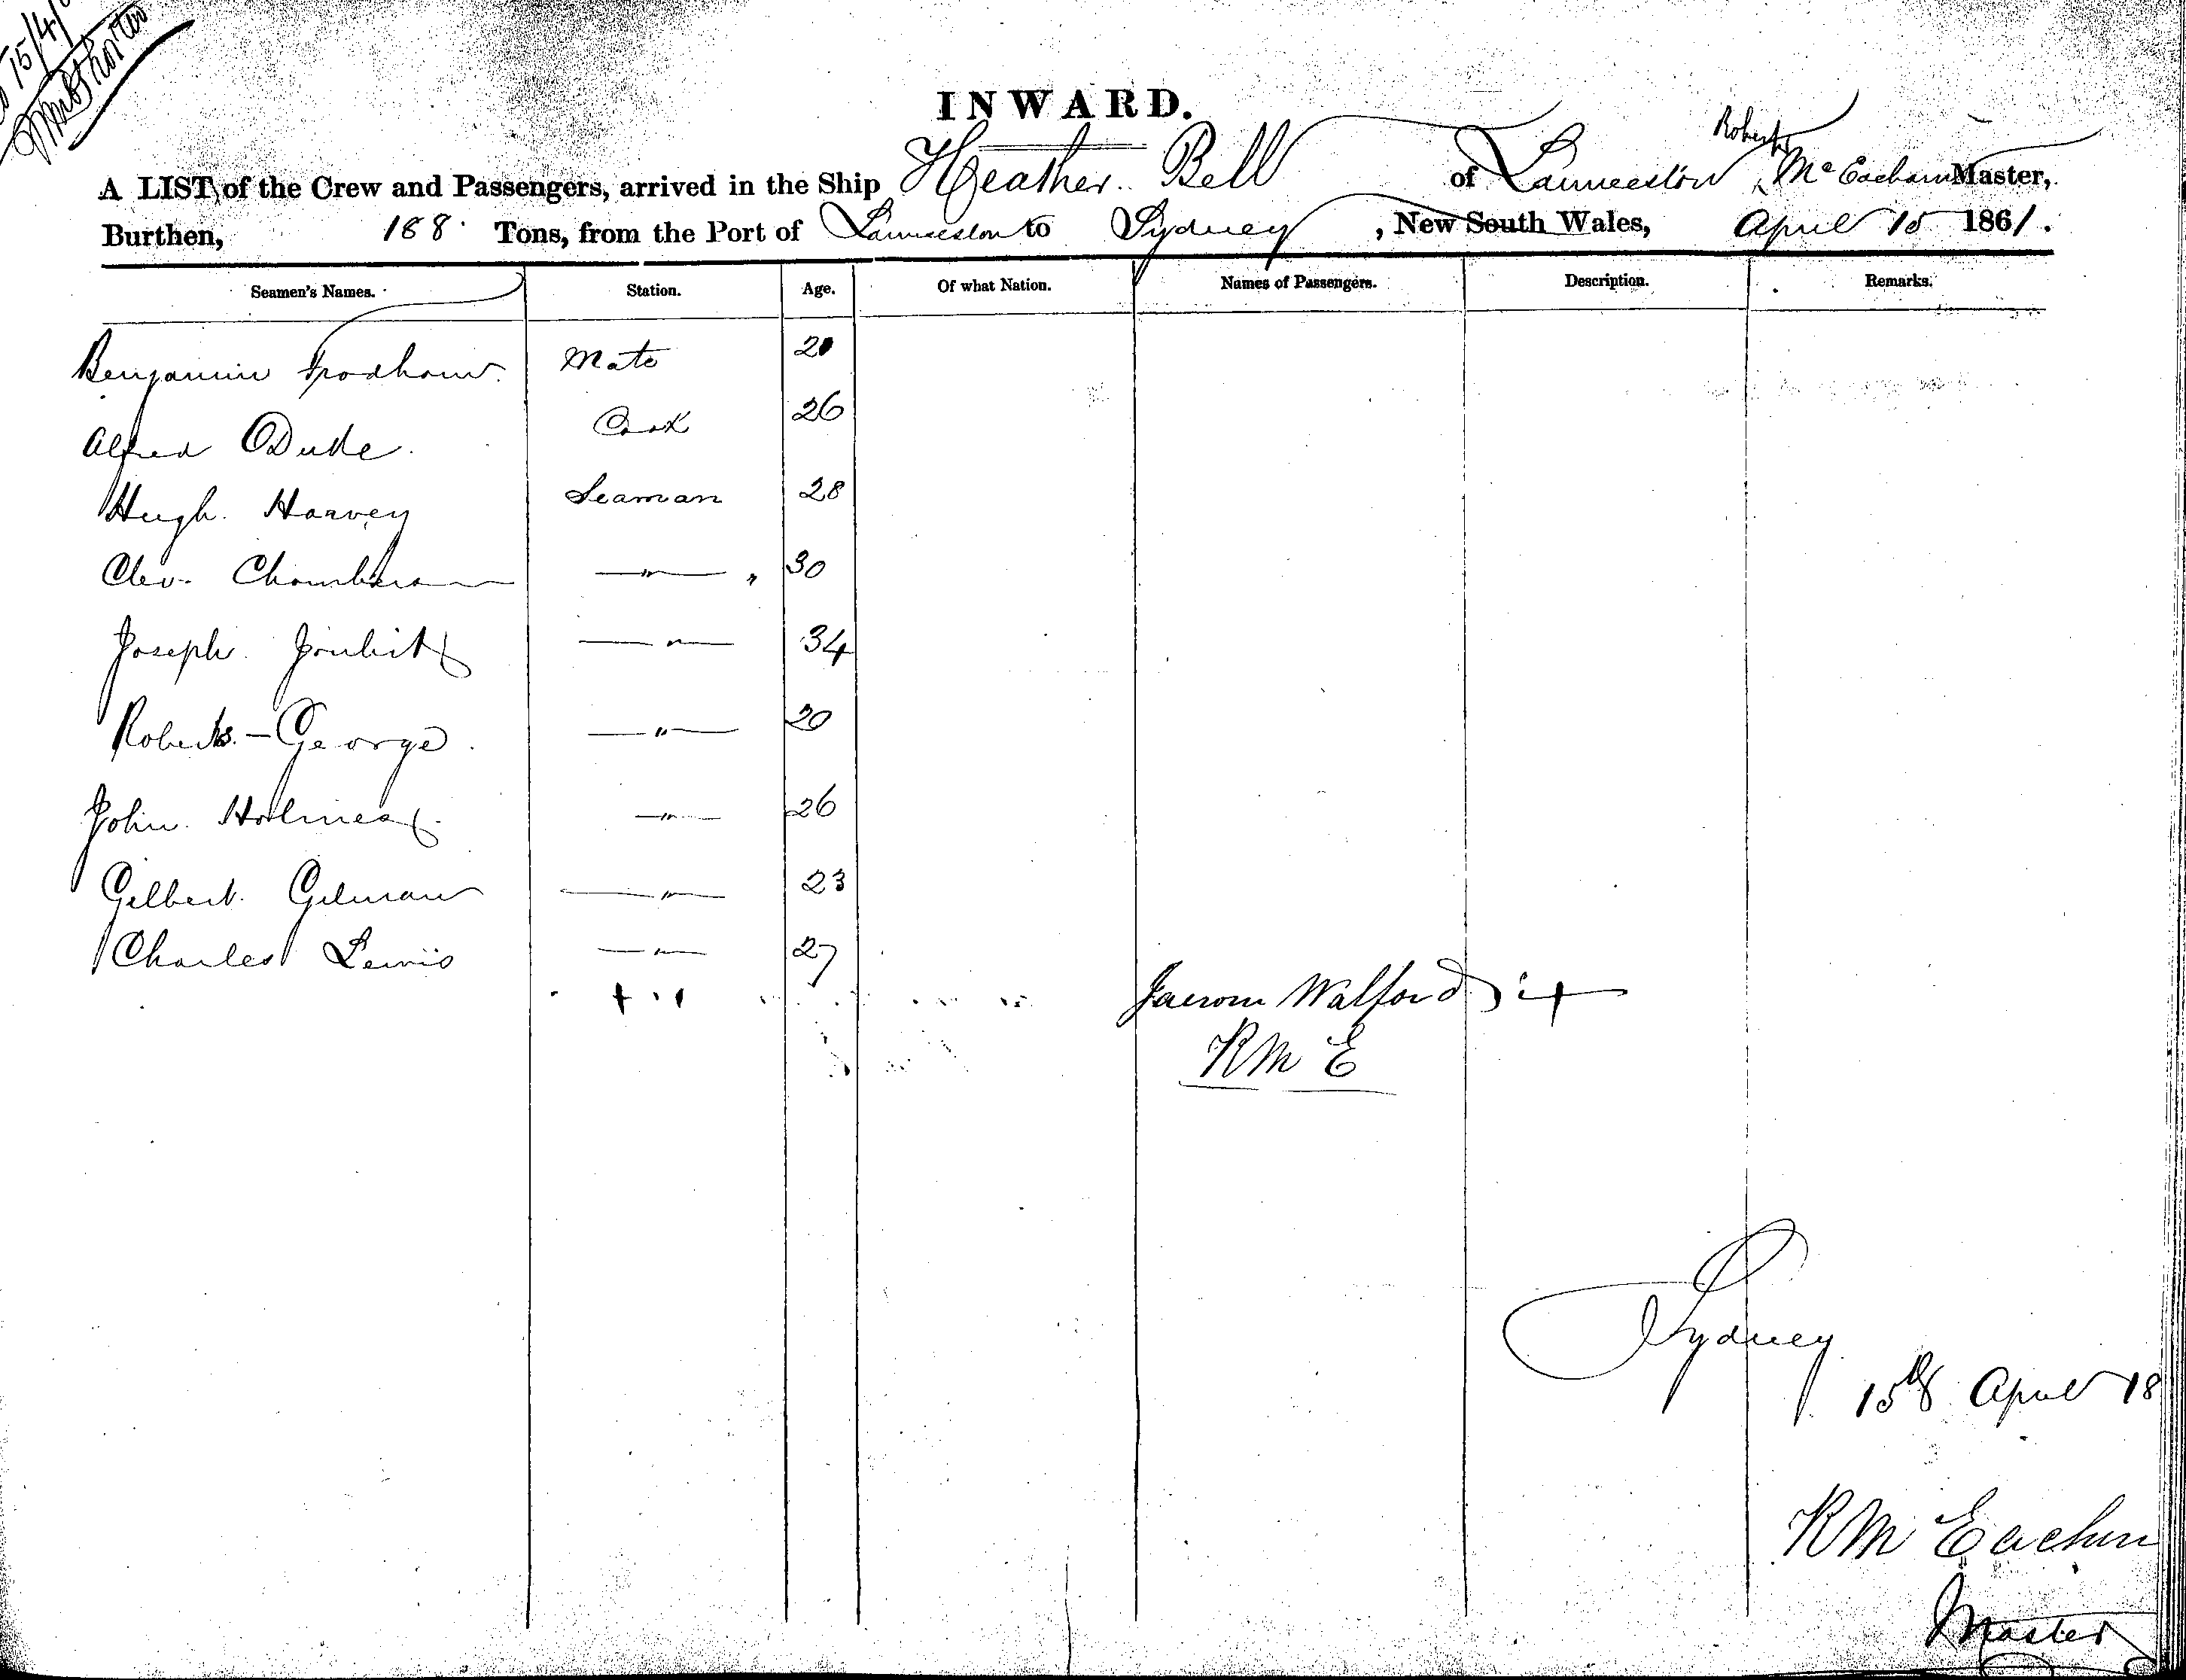 15/4/
INWARD.
Robert
A LIST of the Crew and Passengers, arrived in the Ship Heather Bell of Launceston Mc Eacharn Master,
Burthen, 188 Tons, from the Port of Launceston to Sydney, New South Wales, April 15 1861.
Seamen's Names. Station. Age. Of what Nation. Names of Passengers. Description. Remarks.
Benjamin Mate
Alfred Duke. Cook 26
Hugh. Harvey Seaman 28
Chambers —"— " 30
Joseph —"— 34
Roberts. - George. —"— 20
John. Holmes —"— 26
Gilbert. Gilman —"— 23
Charles Lewis —"— 27
Walford
RM E
Sydney
15th April 18
RM Eachern
Master